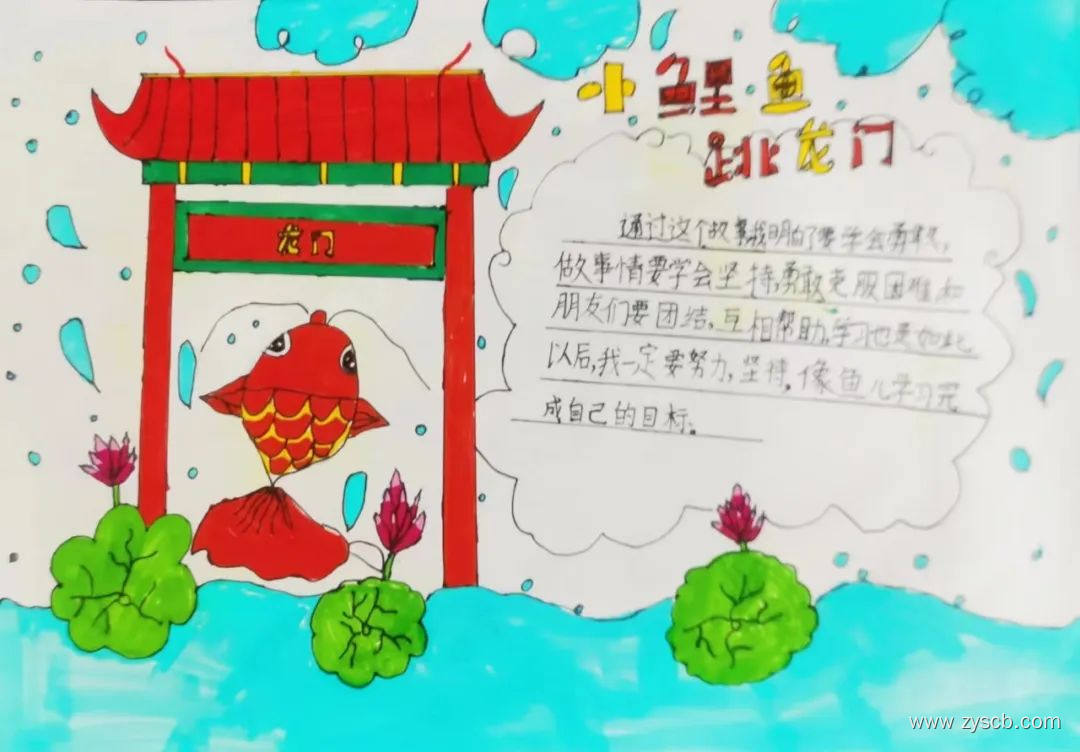 小鲤鱼
跳龙门
龙门
通过这个故事我明白了要学会勇敢,
做事情要学会坚持,勇敢克服困难,如
朋友们要团结、互相帮助,学习也是如此
以后,我一定要努力,坚持。像鱼儿学习完
成自己的目标。
www.zyscb.com